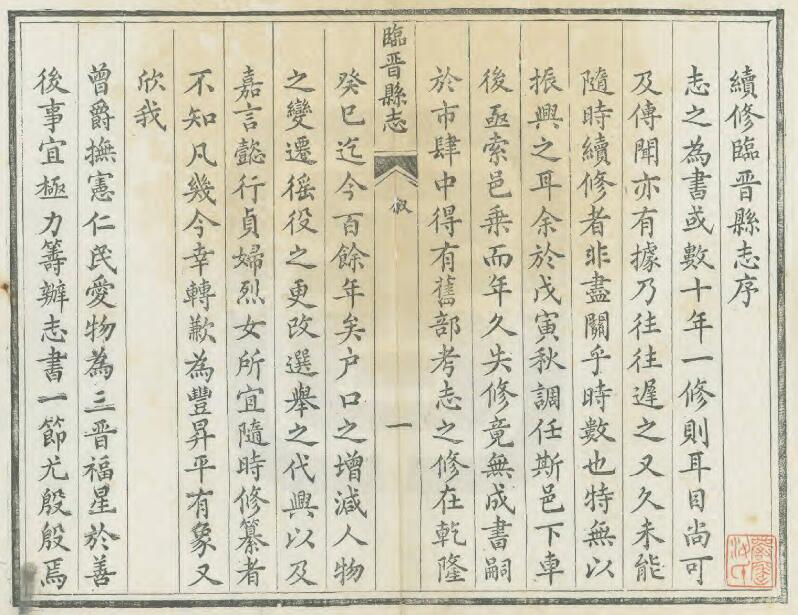 續修臨晉縣志序
志之為書或數十年一修則耳目尚可
及傳聞亦有據乃往往遲之又久未能
隨時續修者非盡關乎時數也特無以
振興之耳余於戊寅秋調任斯邑下車
後亟索邑乘而年久失修竟無成書嗣
於市肆中得有舊部考志之修在乾隆
臨晉縣志
敘
一
癸巳迄今百餘年矣戶口之增減人物
之變遷徭役之更改選舉之代興以及
嘉言懿行貞婦烈女所宜隨時修纂者
不知凡幾今幸轉歉為豐昇平有象又
欣我
曾爵撫憲仁民愛物為三晉福星於善
後事宜極力籌辦志書一節尤殷殷焉